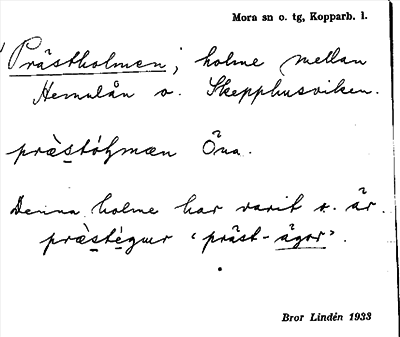 Mora sn o. tg, Kopparb. l.
Prästholmen; holme mellan
Hemulån o. Skepphusviken.
præ̀stóḷmæn Öna.
Denna holme har varit o. är
præ̀stégụr ‹präst-ägor›.
Bror Lindén 1933